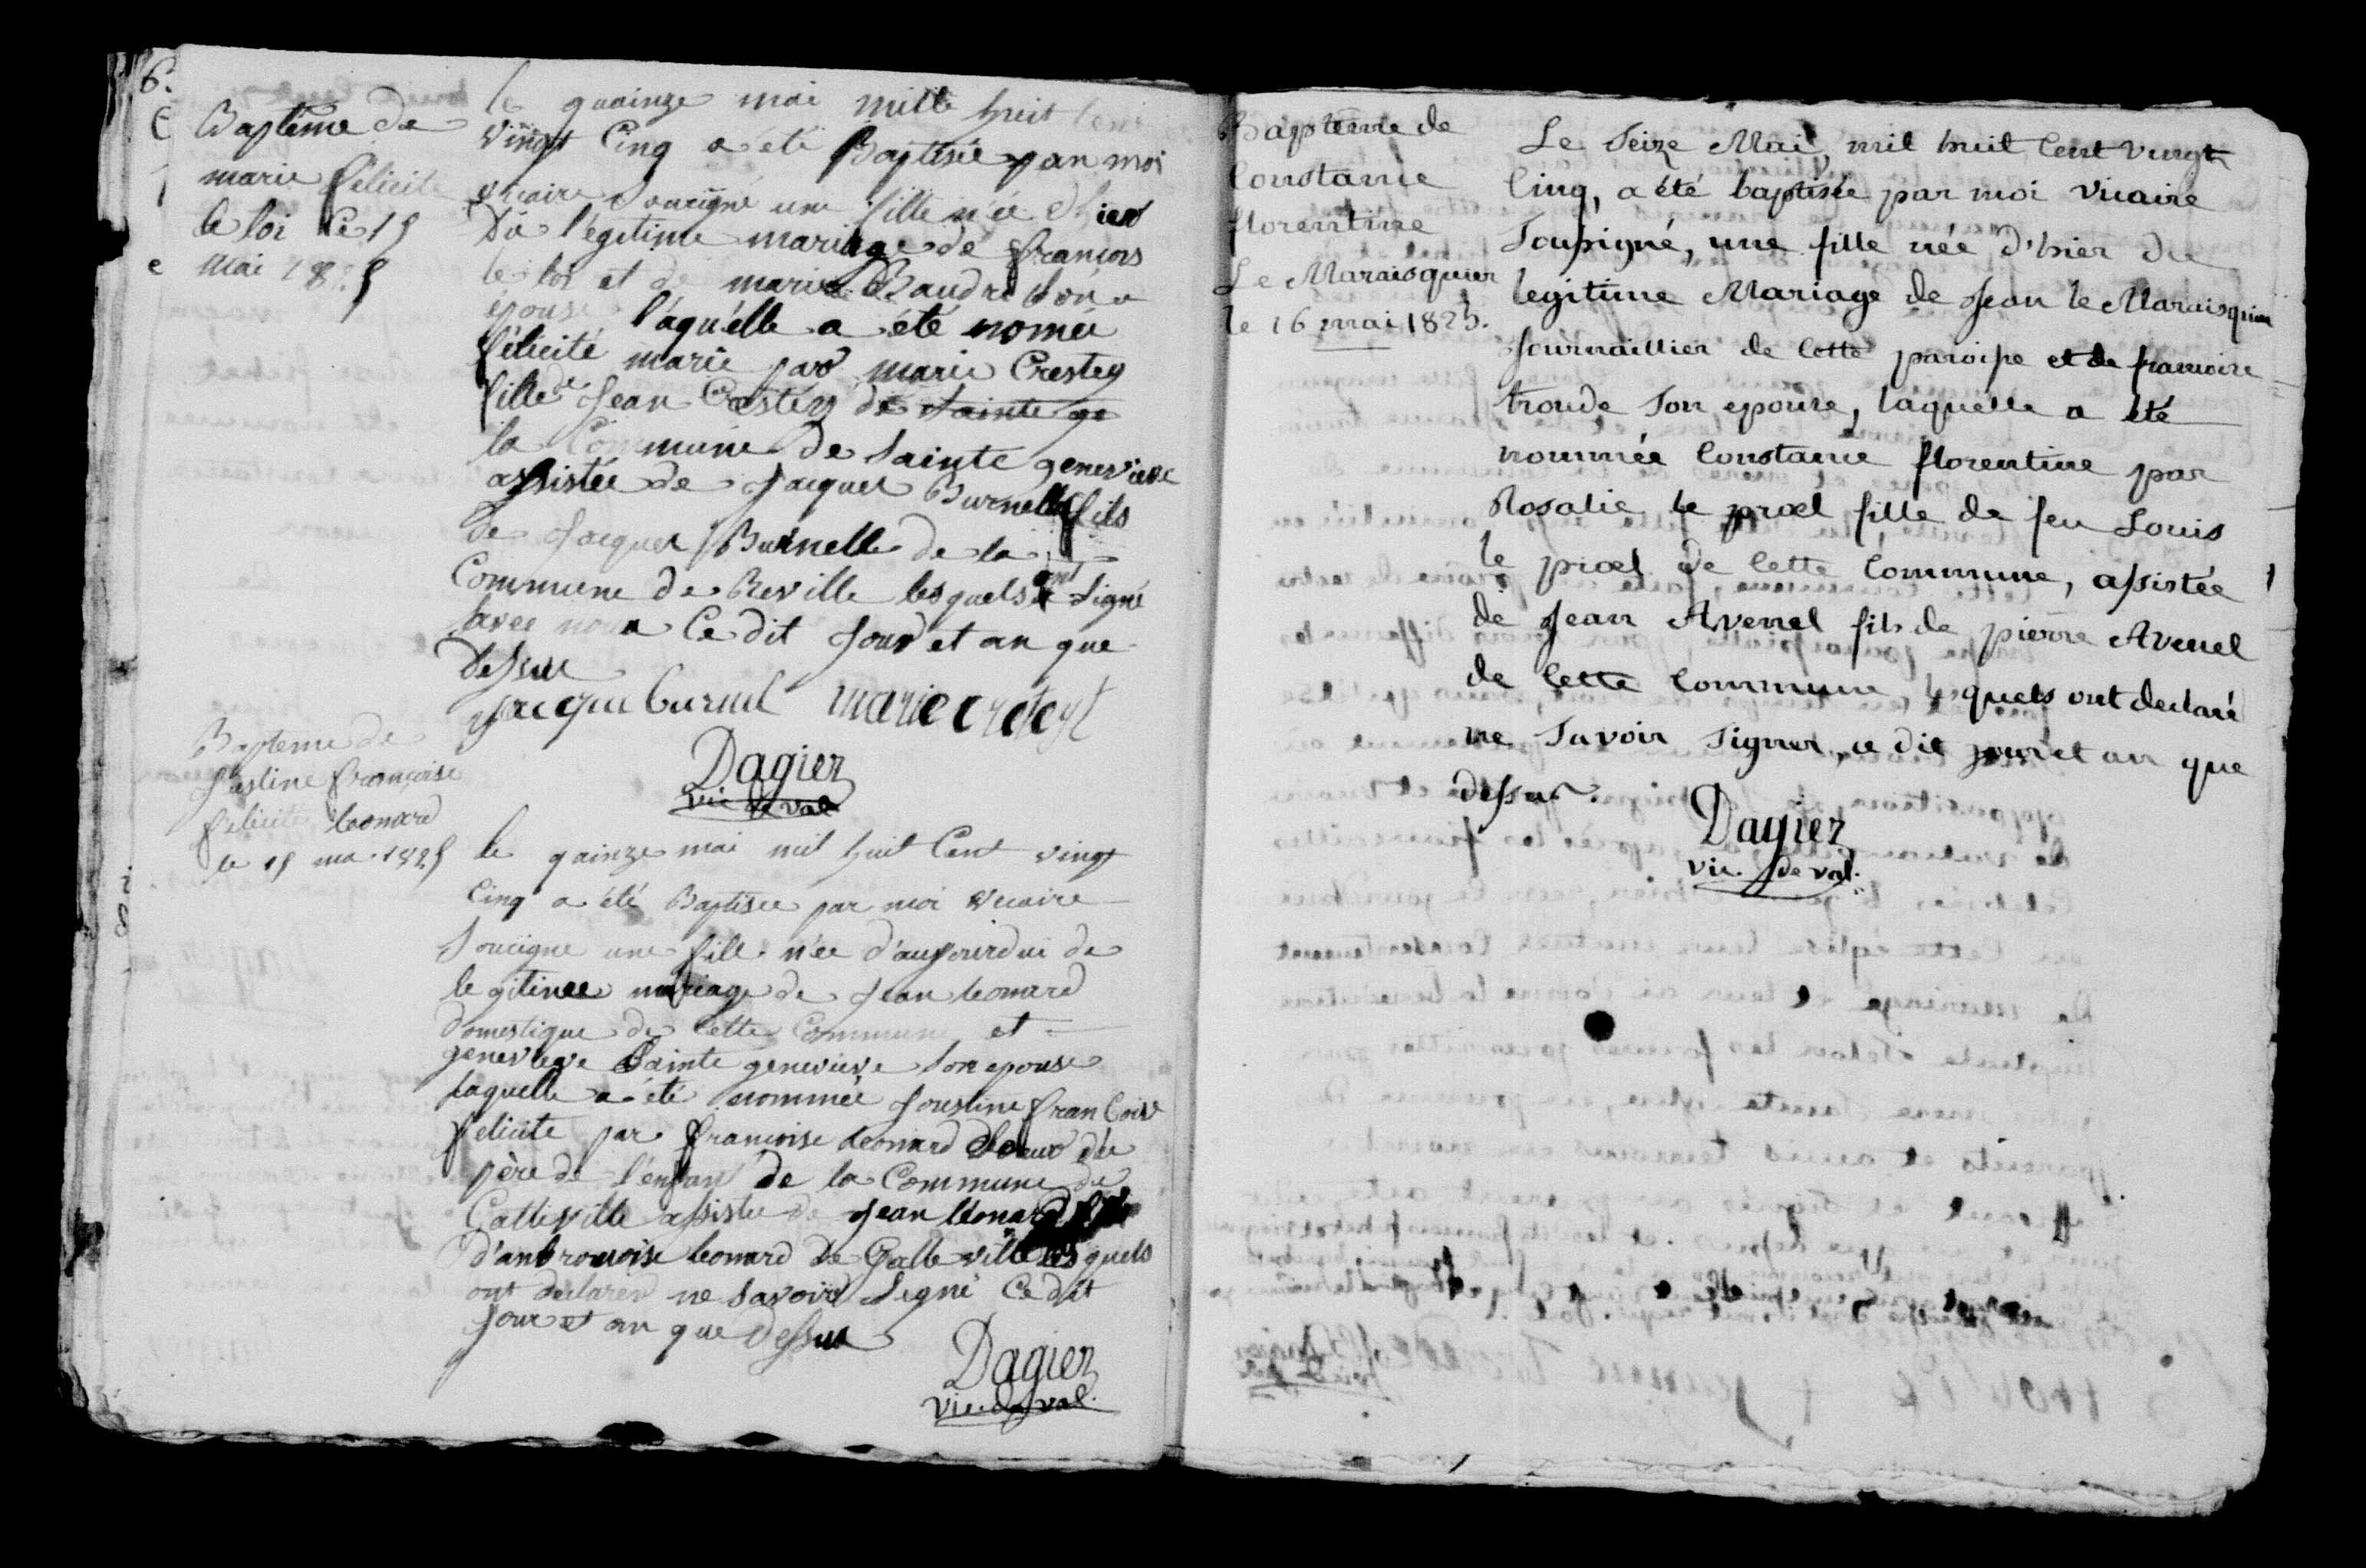 6.
Baptême de
marie felicité
le loi le 15
mai 1825
le quainze mai mille huit Cent
vingt Cinq a été Baptisée par moi
vicaire Soucigné une fille née d'hier
Du l'égitime mariage de françois
le loi et de marie Baudri son
épouse l'aquélle a été nomée
félicité marie par marie Crestey
fille de Jean Crestey de Sainte ge
la Commune de Sainte genevieve
assistée de Jacques Burnelle fils
de Jacques Burnelle de la
Commune de Reville lesquels ont Signé
avec nous Ce dit Jour et an que
dessus
jacque burnel marie cretey
Dagier
vic de val
Bapteme de
Justine françoise
felicité leonard
le 15 mai 1825
le qainze mai mil huit Cent vingt
Cinq a été Baptisée par moi vicaire
Soucigne une fille née d'aujourdui de
legitime mariage de Jean leonard
domestique de Cette Commune et
genevieve Sainte genevieve Son epouse
laquelle a été nommée Joustine francoise
felicité par francoise leonard Soeur du
père de l'enfan de la Commune de
Gatteville assistee de Jean léonard
d'anbrouoise leonard de Galleville lesquels
ont declarer ne savoir Signé Ce dit
Jour et an que dessus
Dagier
vic. de val.
Bapteme de
Constance
florentine
Le Maraisquier
le 16 mai 1825.
Le Seize Mai, mil huit Cent vingt
Cinq, a été baptisée par moi vicaire
Soussigné, une fille née d'hier du
legitime Mariage de Jean le Maraisquier
Journaillier de Cette paroisse et de francoise
troude Son epouse, laquelle a été
nommée Constance florentine par
Rosalie le præl fille de feu Louis
le præl de Cette Commune, assistée
de Jean Avenel fils de pierre Avenel
de Cette Commune, lesquels ont declaré
ne Savoir Signer, ce dit jour et an que
dessus.
Dagier
vic. de val.